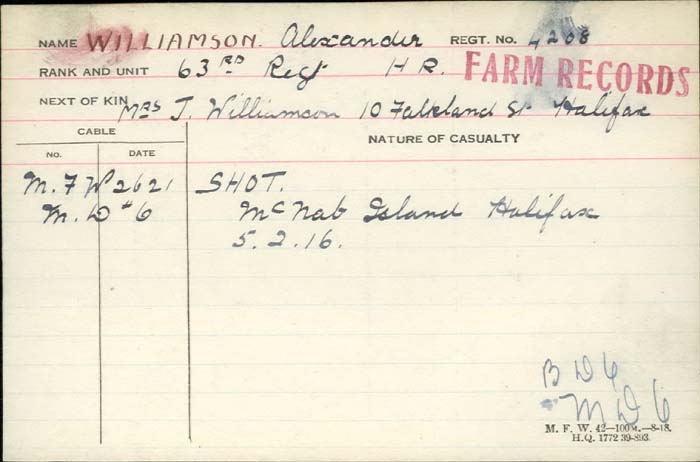 NAME WILLIAMSON. Alexander REGT. No. 4208
RANK AND UNIT 63RD Regt H R.
FARM RECORDS
NEXT OF KIN Mrs J. Williamson 10 Falkland St Halifax
CABLE
NATURE OF CASUALTY
No. DATE
M.F.W 2621 SHOT.
M. D #6 McNab Island Halifax
5.2.16.
B D 6
M D 6
M. F. W. 42—100M.—8-18.
H.Q. 1772 39-893.